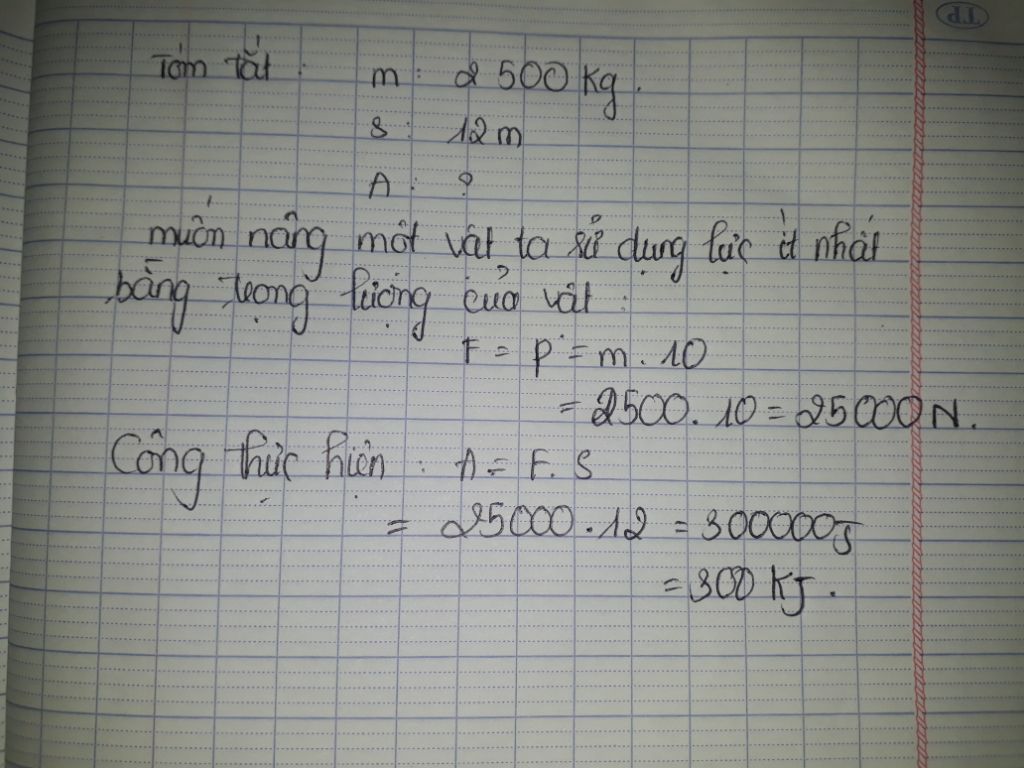 TP
Tóm tắt : m : 2500 Kg.
s : 12m
A : ?
muốn nâng một vật ta sử dụng lực ít nhất
bằng trọng lượng của vật :
F = P = m . 10
= 2500. 10 = 25000 N.
Công thực hiện : A = F. S
= 25000 . 12 = 300000J
= 300 KJ .